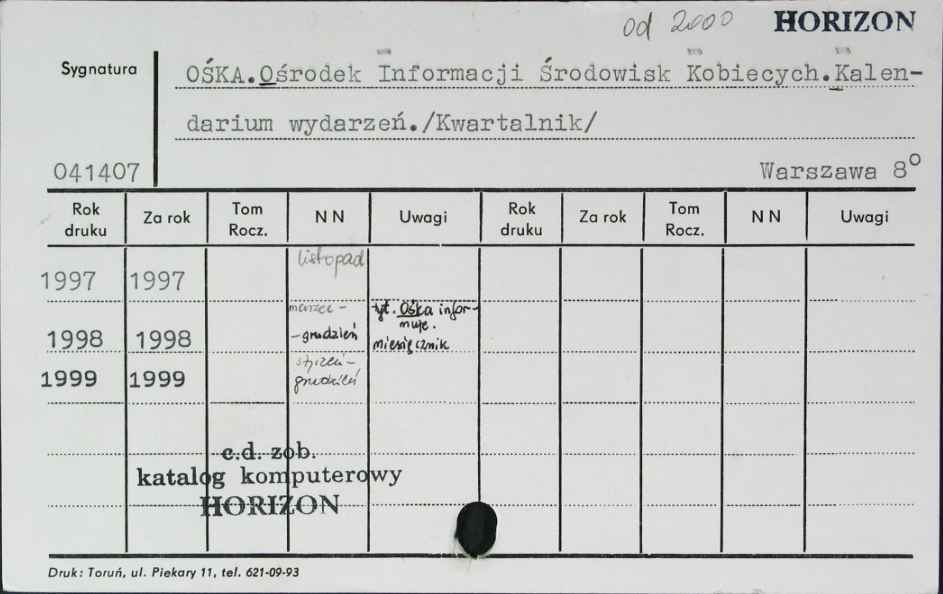 od 2000 HORIZON
Sygnatura
OŚKA.Ośrodek Informacji Środowisk Kobiecych.Kalen-
darium wydarzeń./Kwartalnik/
041407
Warszawa 8°
Rok druku Za rok Tom Rocz. NN Uwagi Rok druku Za rok Tom Rocz. NN Uwagi
1997 1997 listopad
1998 1998 marzec -
- grudzień
tyt. Ośka infor-
muje.
miesięcznik
1999 1999 styczeń -
grudzień
c.d. zob.
katalog komputerowy
HORIZON
Druk: Toruń, ul. Piekary 11, tel. 621-09-93